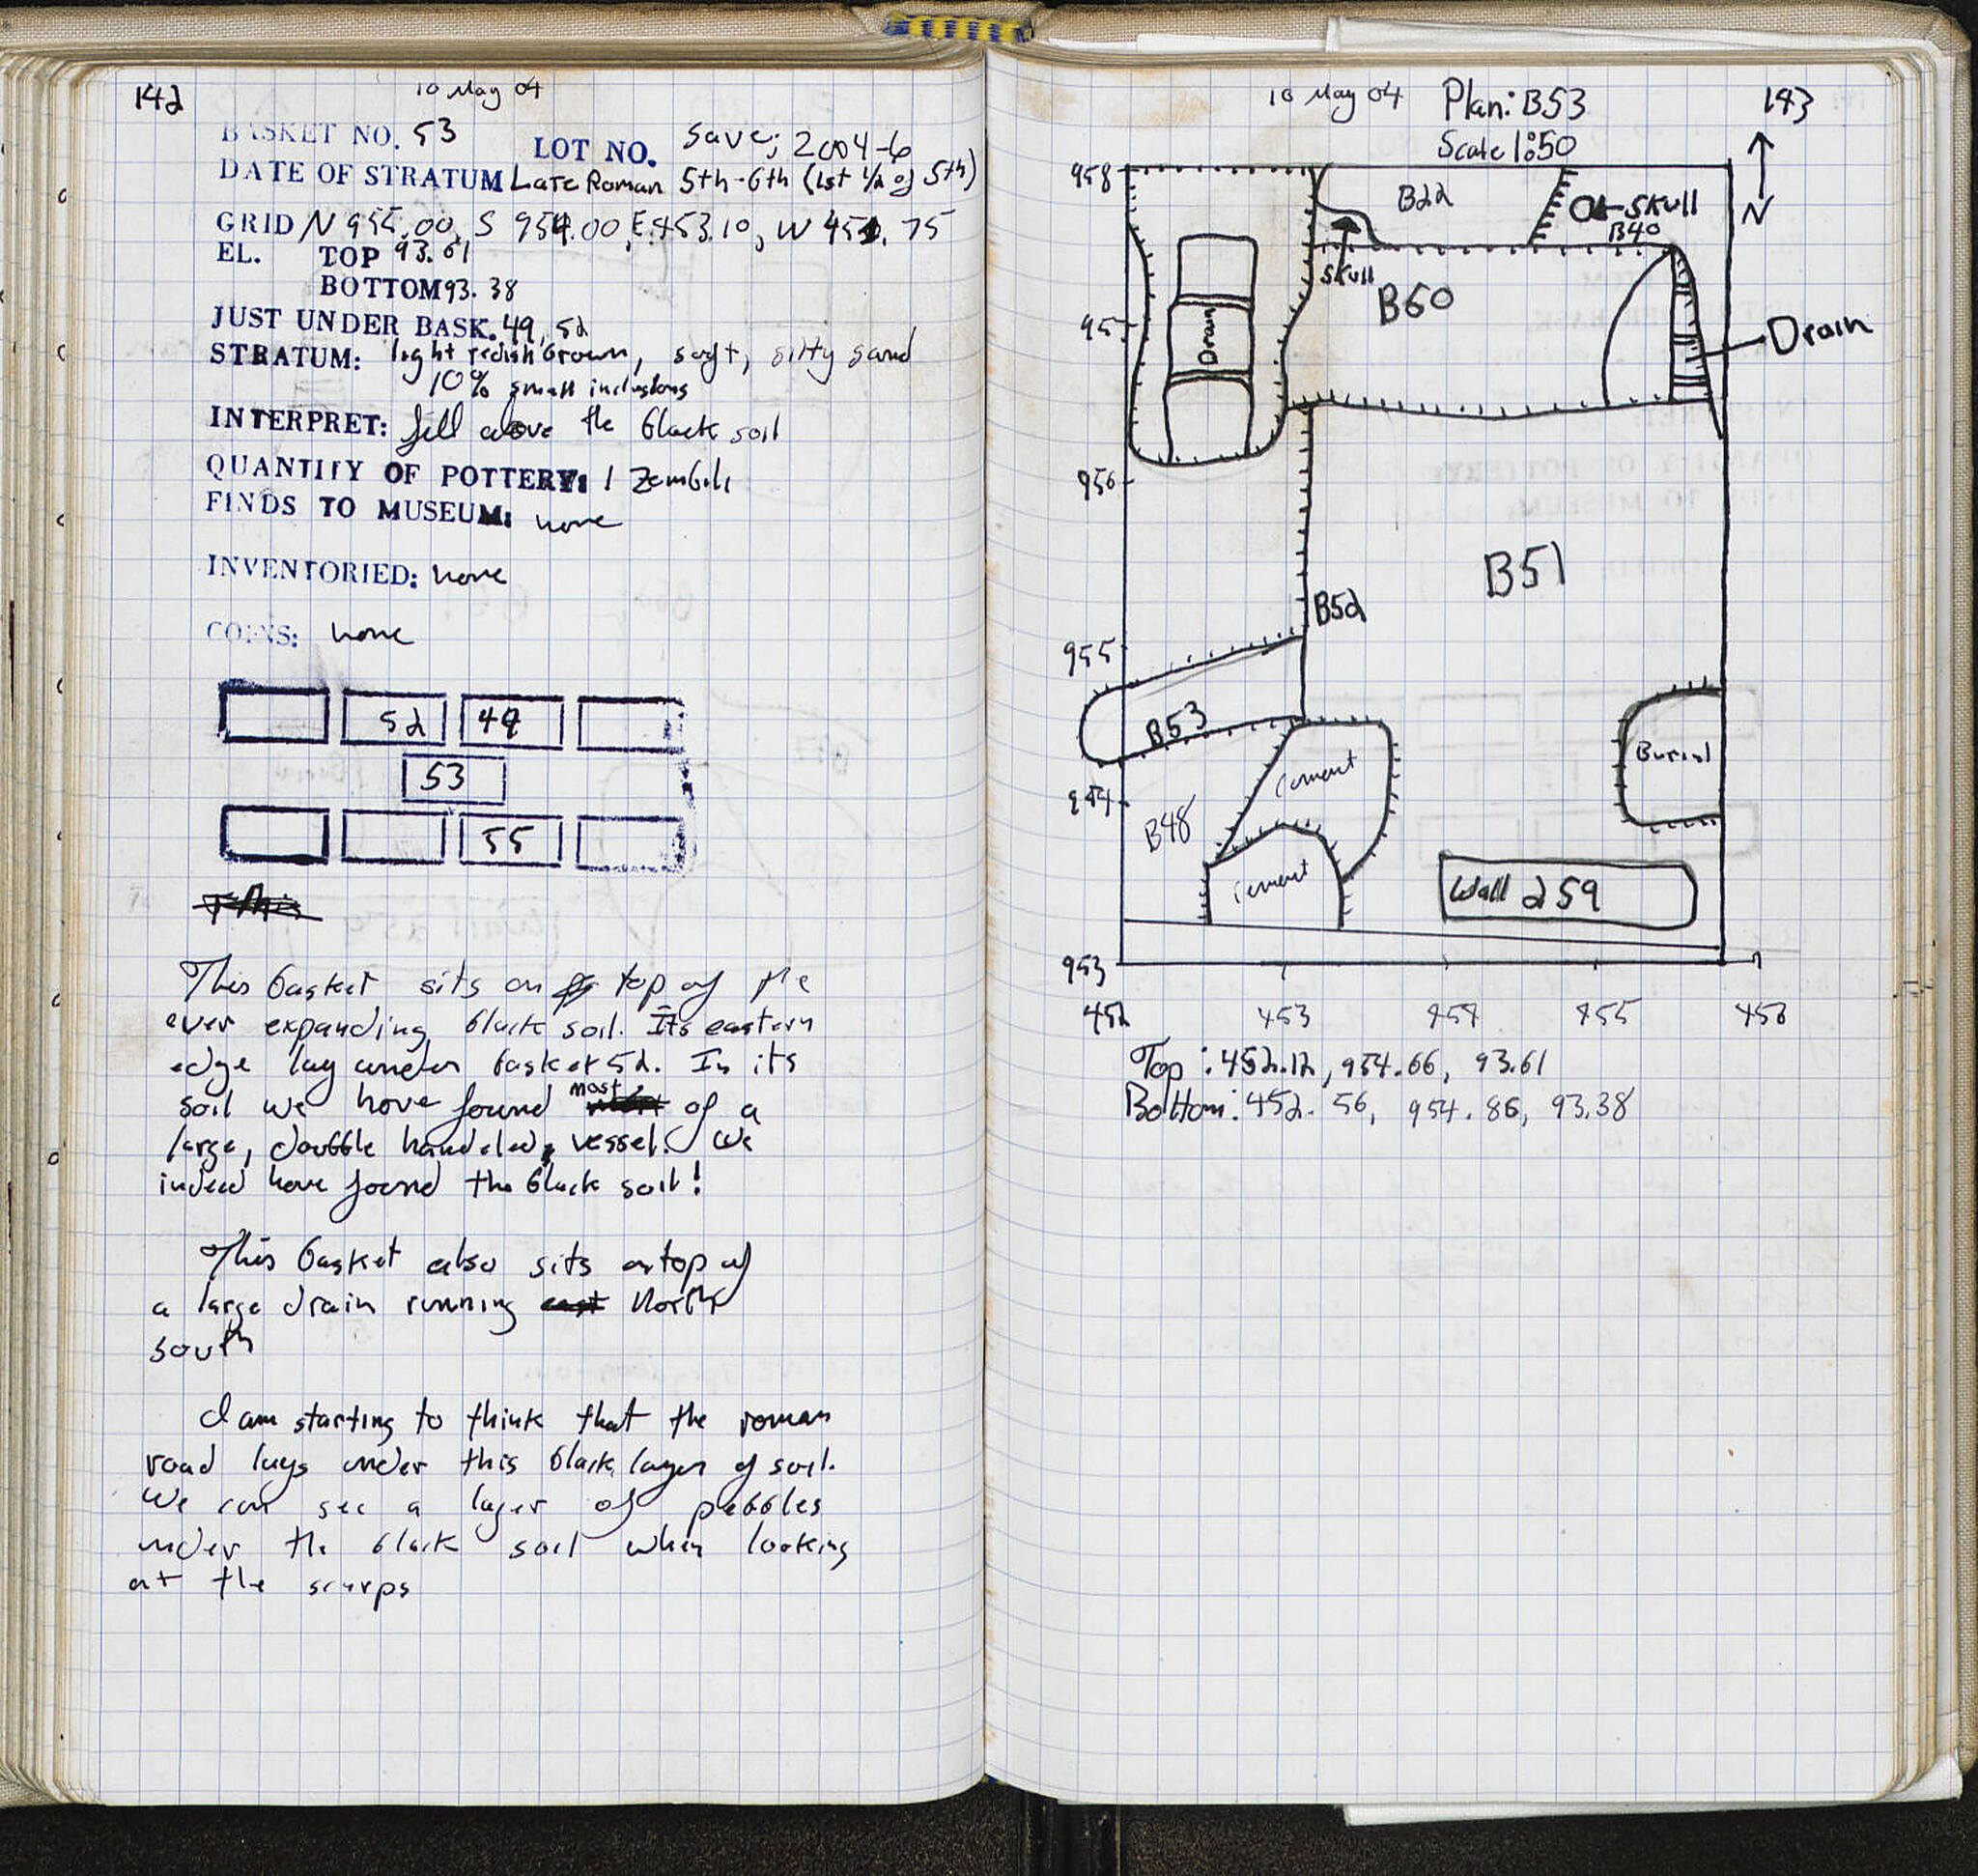 142
10 May 04
BASKET NO. 53 LOT NO. Save; 2004-6
DATE OF STRATUM Late Roman 5th-6th (1st 1/2 of 5th)
GRID N 955.00, S 954.00, E 453.10, W 451.75
EL. TOP 93.61
BOTTOM 93.38
JUST UNDER BASK. 49, 52
STRATUM: light redish brown, soft, silty sand
10% small inclusions
INTERPRET: fill above the black soil
QUANTITY OF POTTERY: 1 Zembili
FINDS TO MUSEUM: none
INVENTORIED: none
COINS: none
52 49
53
55
This
This basket sits on top of the
ever expanding black soil. Its eastern
edge lay under basket 52. In its
soil we have found most of a
large, doubble handeled, vessel. We
indeed have found the black soil!
This basket also sits atop of
a large drain running east North
south
I am starting to think that the roman
road lays under this black layer of soil.
We can see a layer of pebbles
under the black soil when looking
at the scarps
10 May 04 Plan: B53 143
Scale 1:50
N
958
B22
Skull
B40
Skull
B50
Drain
95
Drain
956
B51
B52
955
B53
Burial
Cement
954
B48
Cement
Wall 259
953
452 453 454 455 456
Top: 452.12, 954.66, 93.61
Bottom: 452.56, 954.86, 93.38